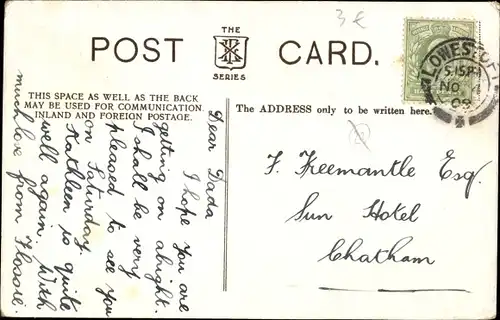 3 €
POST CARD.
THE
SERIES
LOWESTOFT
5.15 PM
NO
09
THIS SPACE AS WELL AS THE BACK
MAY BE USED FOR COMMUNICATION.
INLAND AND FOREIGN POSTAGE.
The ADDRESS only to be written here.
Dear Dada
I hope you are
getting on alright.
I shall be very
pleased to see you
on Saturday.
Kathleen is quite
well again. With
much love from
F. Freemantle Esq.
Sun Hotel
Chatham.